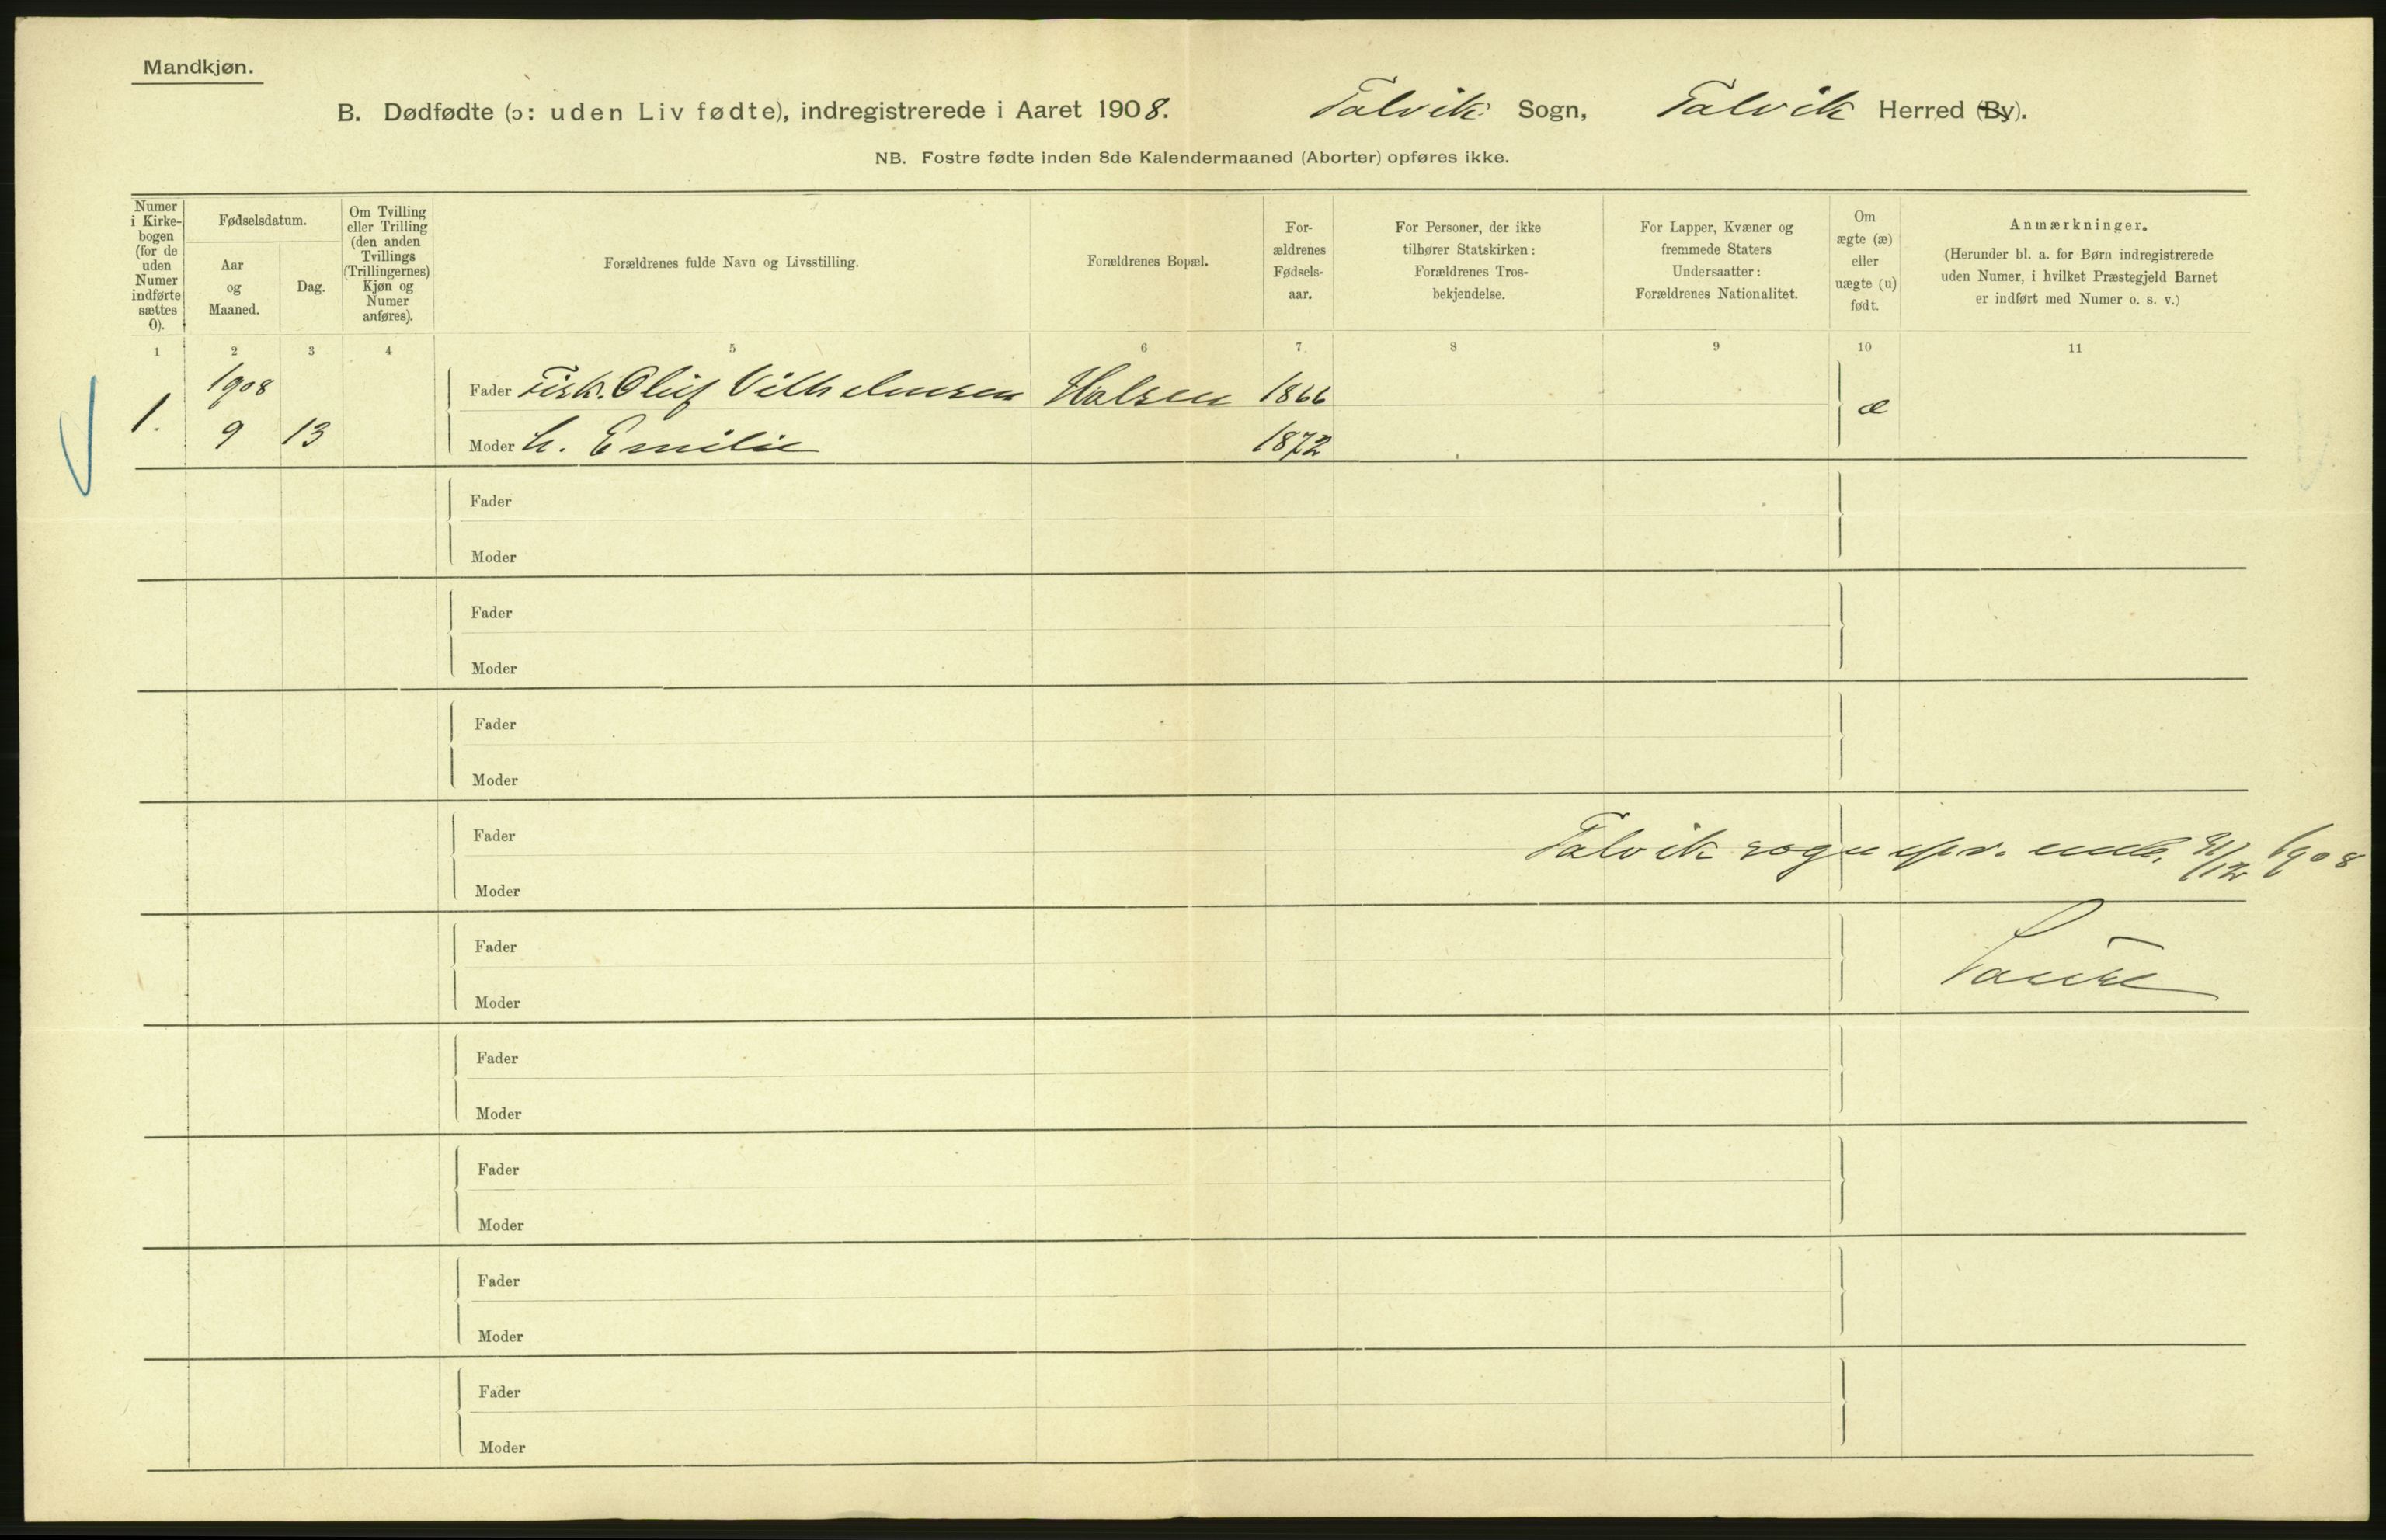 Mandkjøn.
B. Dødfødte (ɔ: uden Liv fødte), indregistrerede i Aaret 1908. Talvik Sogn, Talvik Herred (By).
NB. Fostre fødte inden 8de Kalendermaaned (Aborter) opføres ikke.
Numer
i Kirke-
bogen
(for de
uden
Numer
indførte
sættes
0).
Fødselsdatum.
Aar
og
Maaned.
Dag.
Om Tvilling
eller Trilling
(den anden
Tvillings
(Trillingernes)
Kjøn og
Numer
anføres).
Forældrenes fulde Navn og Livsstilling.
Forældrenes Bopæl.
For-
ældrenes
Fødsels-
aar.
For Personer, der ikke
tilhører Statskirken:
Forældrenes Tros-
bekjendelse.
For Lapper, Kvæner og
fremmede Staters
Undersaatter:
Forældrenes Nationalitet.
Om
ægte (æ)
eller
uægte (u)
født.
Anmærkninger.
(Herunder bl. a. for Børn indregistrerede
uden Numer, i hvilket Præstegjeld Barnet
er indført med Numer o. s. v.)
1 2 3 4 5 6 7 8 9 10 11
1908
Fader Fisk. Oluf Vilhelmsen Halsen 1866
1. æ
9 13 Moder h. Emilie 1872
Fader
Moder
Fader
Moder
Fader
Moder
Fader
Talvik sognepr. emb. 31/12 1908
Moder
Fader
Moder
Fader
Moder
Fader
Moder
Fader
Moder
Fader
Moder